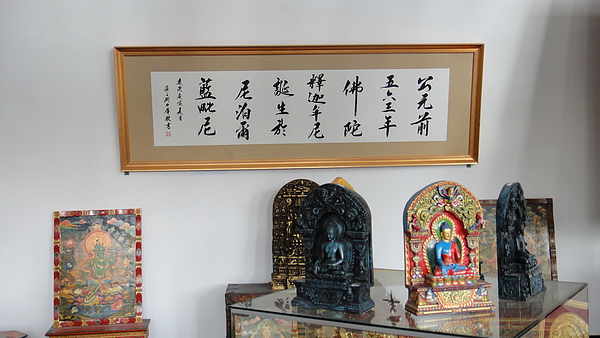 公元前
五六三年
佛陀
釋迦牟尼
誕生於
尼泊爾
藍毗尼